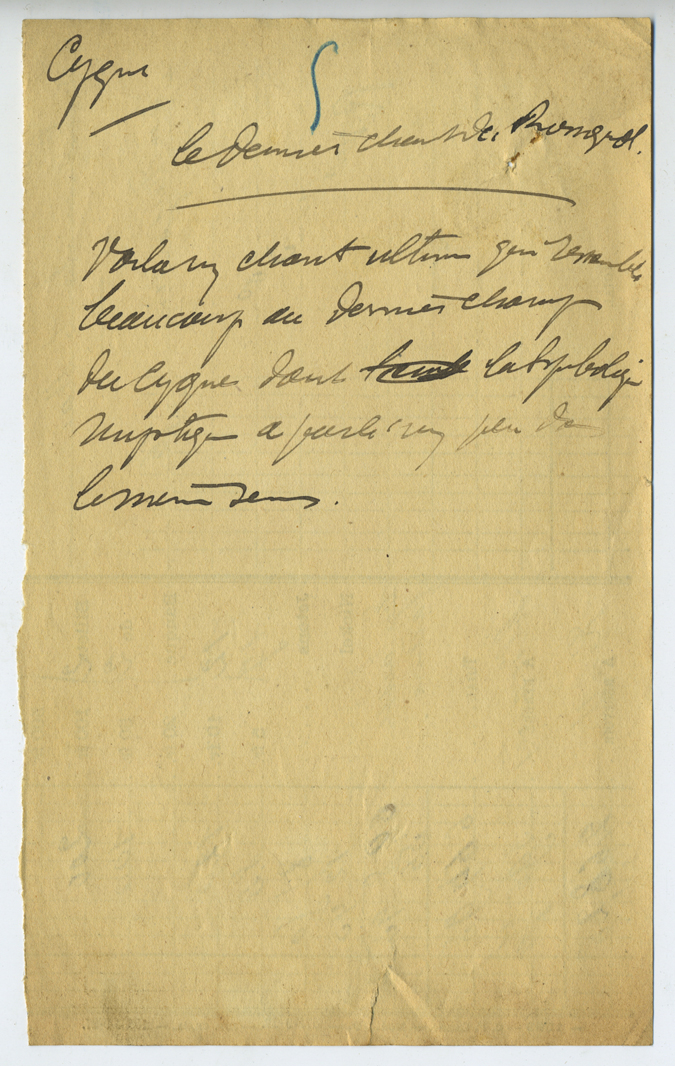 Cygne
le dernier chant du Rossignol.
Voila un chant ultime qui ressemble
beaucoup au dernier champ
du Cygne dont la symbolique
mystique a parlé un peu dans
le même sens.